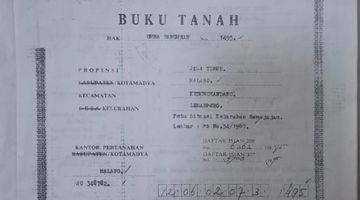 BUKU TANAH
HAK GUNA BANGUNAN No. 1495.
PROPINSI JAWA TIMUR.
KABUPATEN/KOTAMADYA MALANG.
KECAMATAN KEDUNGKANDANG.
DESA/KELURAHAN LESANPURO.
Peta Situasi Kelurahan
Lembar : No.34/1987.
KANTOR PERTANAHAN
KABUPATEN/KOTAMADYA
MALANG.
DAFTAR ISIAN 208
No. /95
DAFTAR ISIAN 307
No. /95
12 06 02 07 3 1495